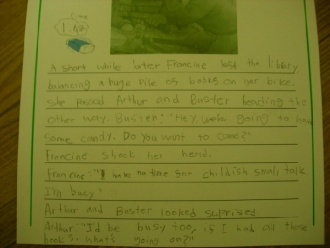 A short while later Francine left the library
balancing a huge pile of books on her bike.
She passed Arthur and Buster heading the
other way. Buster: "Hey, we're going to
some candy. Do you want to come?
Francine shook her head.
Francine: "I have no time for childish small talk
I'm busy!
Arthur and Buster looked suprised
Arthur: "I'd be busy too, if I had all those
books. What's going on?"